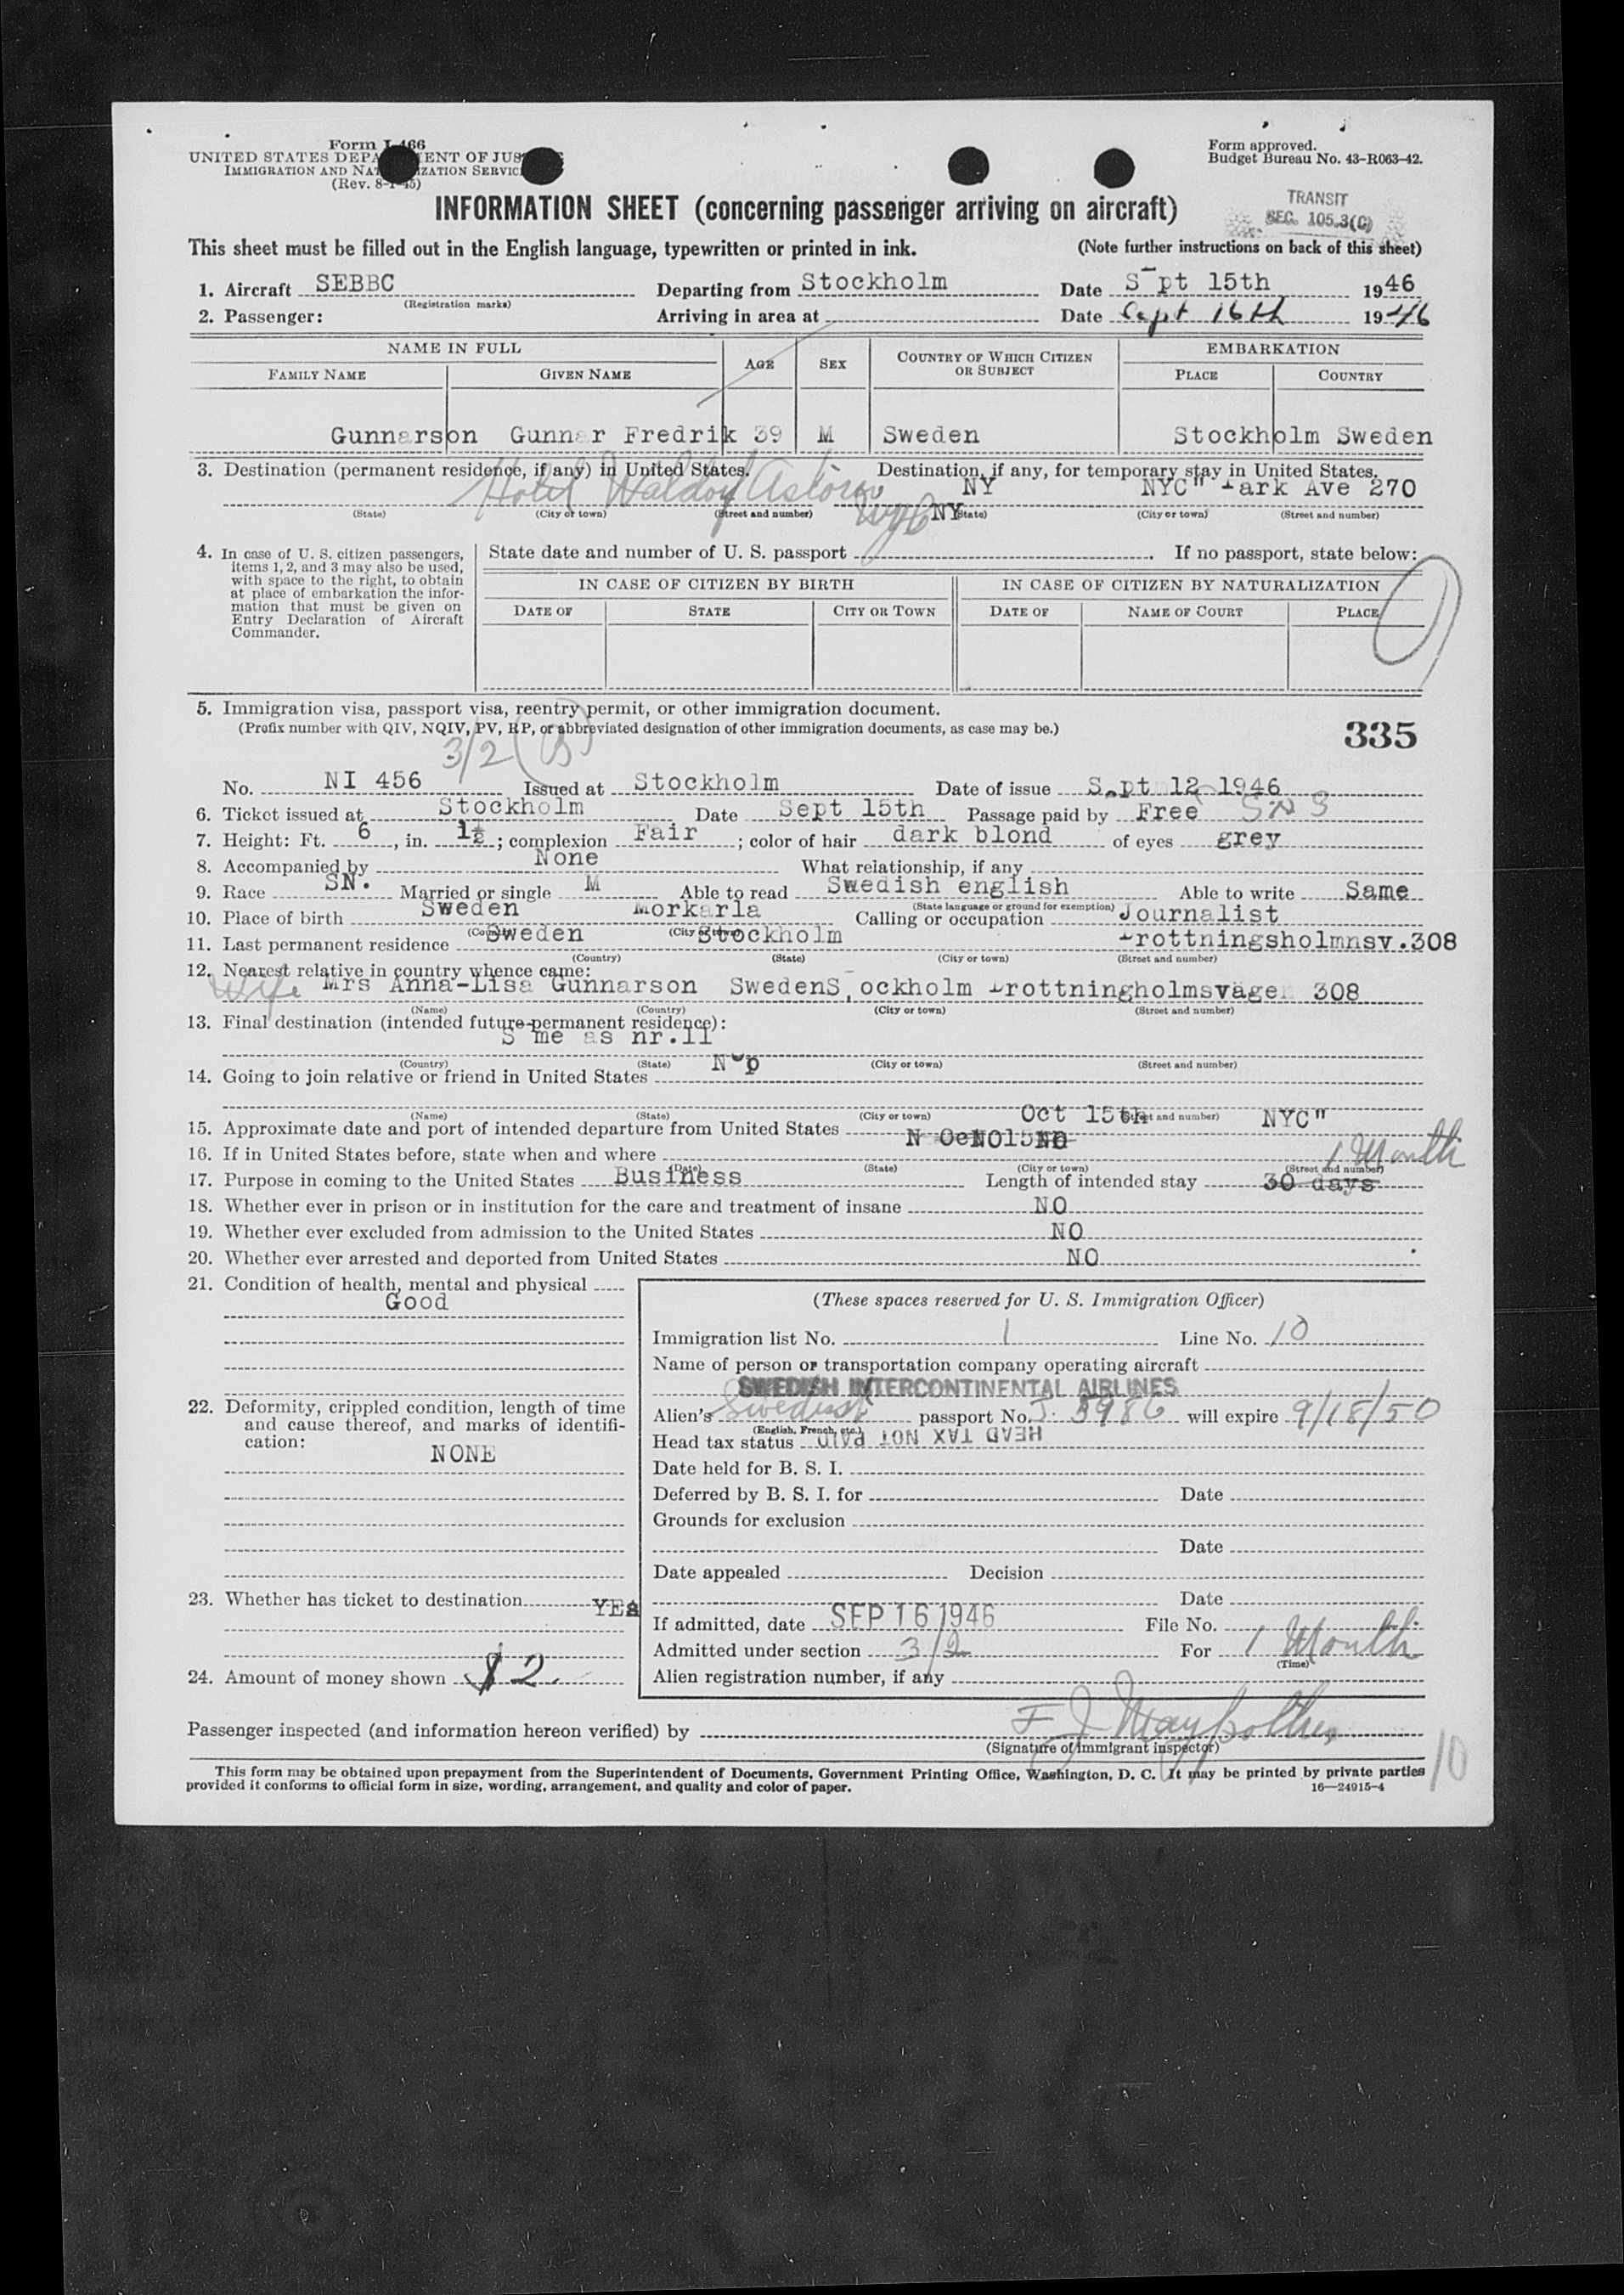 Form I-466
UNITED STATES DEPARTMENT OF JUSTICE
IMMIGRATION AND NATURALIZATION SERVICE
(Rev. 8-1-45)
Form approved.
Budget Bureau No. 43-R063-42.
INFORMATION SHEET (concerning passenger arriving on aircraft)
TRANSIT
SEC. 105.3(C)
This sheet must be filled out in the English language, typewritten or printed in ink. (Note further instructions on back of this sheet)
1. Aircraft SEBBC Departing from Stockholm Date S pt 15th 1946
(Registration marks)
2. Passenger: Arriving in area at Date Sept 16th 1946
NAME IN FULL AGE SEX COUNTRY OF WHICH CITIZEN OR SUBJECT EMBARKATION
FAMILY NAME GIVEN NAME PLACE COUNTRY
Gunnarson Gunnar Fredrik 39 M Sweden Stockholm Sweden
3. Destination (permanent residence, if any) in United States. Destination, if any, for temporary stay in United States.
Hotel Waldorf Astoria NYC NY NYC" Park Ave 270
NY
(State) (City or town) (Street and number) (State) (City or town) (Street and number)
4. In case of U. S. citizen passengers, items 1, 2, and 3 may also be used, with space to the right, to obtain at place of embarkation the information that must be given on Entry Declaration of Aircraft Commander.
State date and number of U. S. passport . If no passport, state below:
IN CASE OF CITIZEN BY BIRTH IN CASE OF CITIZEN BY NATURALIZATION
DATE OF STATE CITY OR TOWN DATE OF NAME OF COURT PLACE
5. Immigration visa, passport visa, reentry permit, or other immigration document.
(Prefix number with QIV, NQIV, PV, RP, or abbreviated designation of other immigration documents, as case may be.)
335
3/2 (B)
No. NI 456 Issued at Stockholm Date of issue Sept 12 1946
6. Ticket issued at Stockholm Date Sept 15th Passage paid by Free
7. Height: Ft. 6, in. 1½; complexion Fair; color of hair dark blond of eyes grey
8. Accompanied by None What relationship, if any
9. Race SN. Married or single M Able to read Swedish english Able to write Same
(State language or ground for exemption)
10. Place of birth Sweden Morkarla Calling or occupation Journalist
(Country) (City or town)
11. Last permanent residence Sweden Stockholm Drottningsholmnsv.308
(Country) (State) (City or town) (Street and number)
12. Nearest relative in country whence came:
Wife Mrs Anna-Lisa Gunnarson Sweden Stockholm Drottningholmsvägen 308
(Name) (Country) (City or town) (Street and number)
13. Final destination (intended future permanent residence):
S me as nr.11
(Country) (State) (City or town) (Street and number)
14. Going to join relative or friend in United States
(Name) (State) (City or town) (Street and number)
15. Approximate date and port of intended departure from United States Oct 15th NYC"
16. If in United States before, state when and where
(Date) (State) (City or town) (Street and number)
1 Month
17. Purpose in coming to the United States Business Length of intended stay 30 days
18. Whether ever in prison or in institution for the care and treatment of insane NO
19. Whether ever excluded from admission to the United States NO
20. Whether ever arrested and deported from United States NO
21. Condition of health, mental and physical
Good
(These spaces reserved for U. S. Immigration Officer)
Immigration list No. 1 Line No. 10
Name of person or transportation company operating aircraft
SWEDISH INTERCONTINENTAL AIRLINES
22. Deformity, crippled condition, length of time and cause thereof, and marks of identification:
NONE
Alien's Swedish passport No. J 5986 will expire 9/18/50
(English, French, etc.)
Head tax status HEAD TAX NOT PAID
Date held for B. S. I.
Deferred by B. S. I. for Date
Grounds for exclusion
Date
Date appealed Decision
23. Whether has ticket to destination YEs
Date
If admitted, date SEP 16 1946 File No.
Admitted under section 3/2 For 1 Month
(Time)
24. Amount of money shown $2.
Alien registration number, if any
Passenger inspected (and information hereon verified) by
(Signature of immigrant inspector)
10
This form may be obtained upon prepayment from the Superintendent of Documents, Government Printing Office, Washington, D. C. It may be printed by private parties
provided it conforms to official form in size, wording, arrangement, and quality and color of paper. 16—24915-4